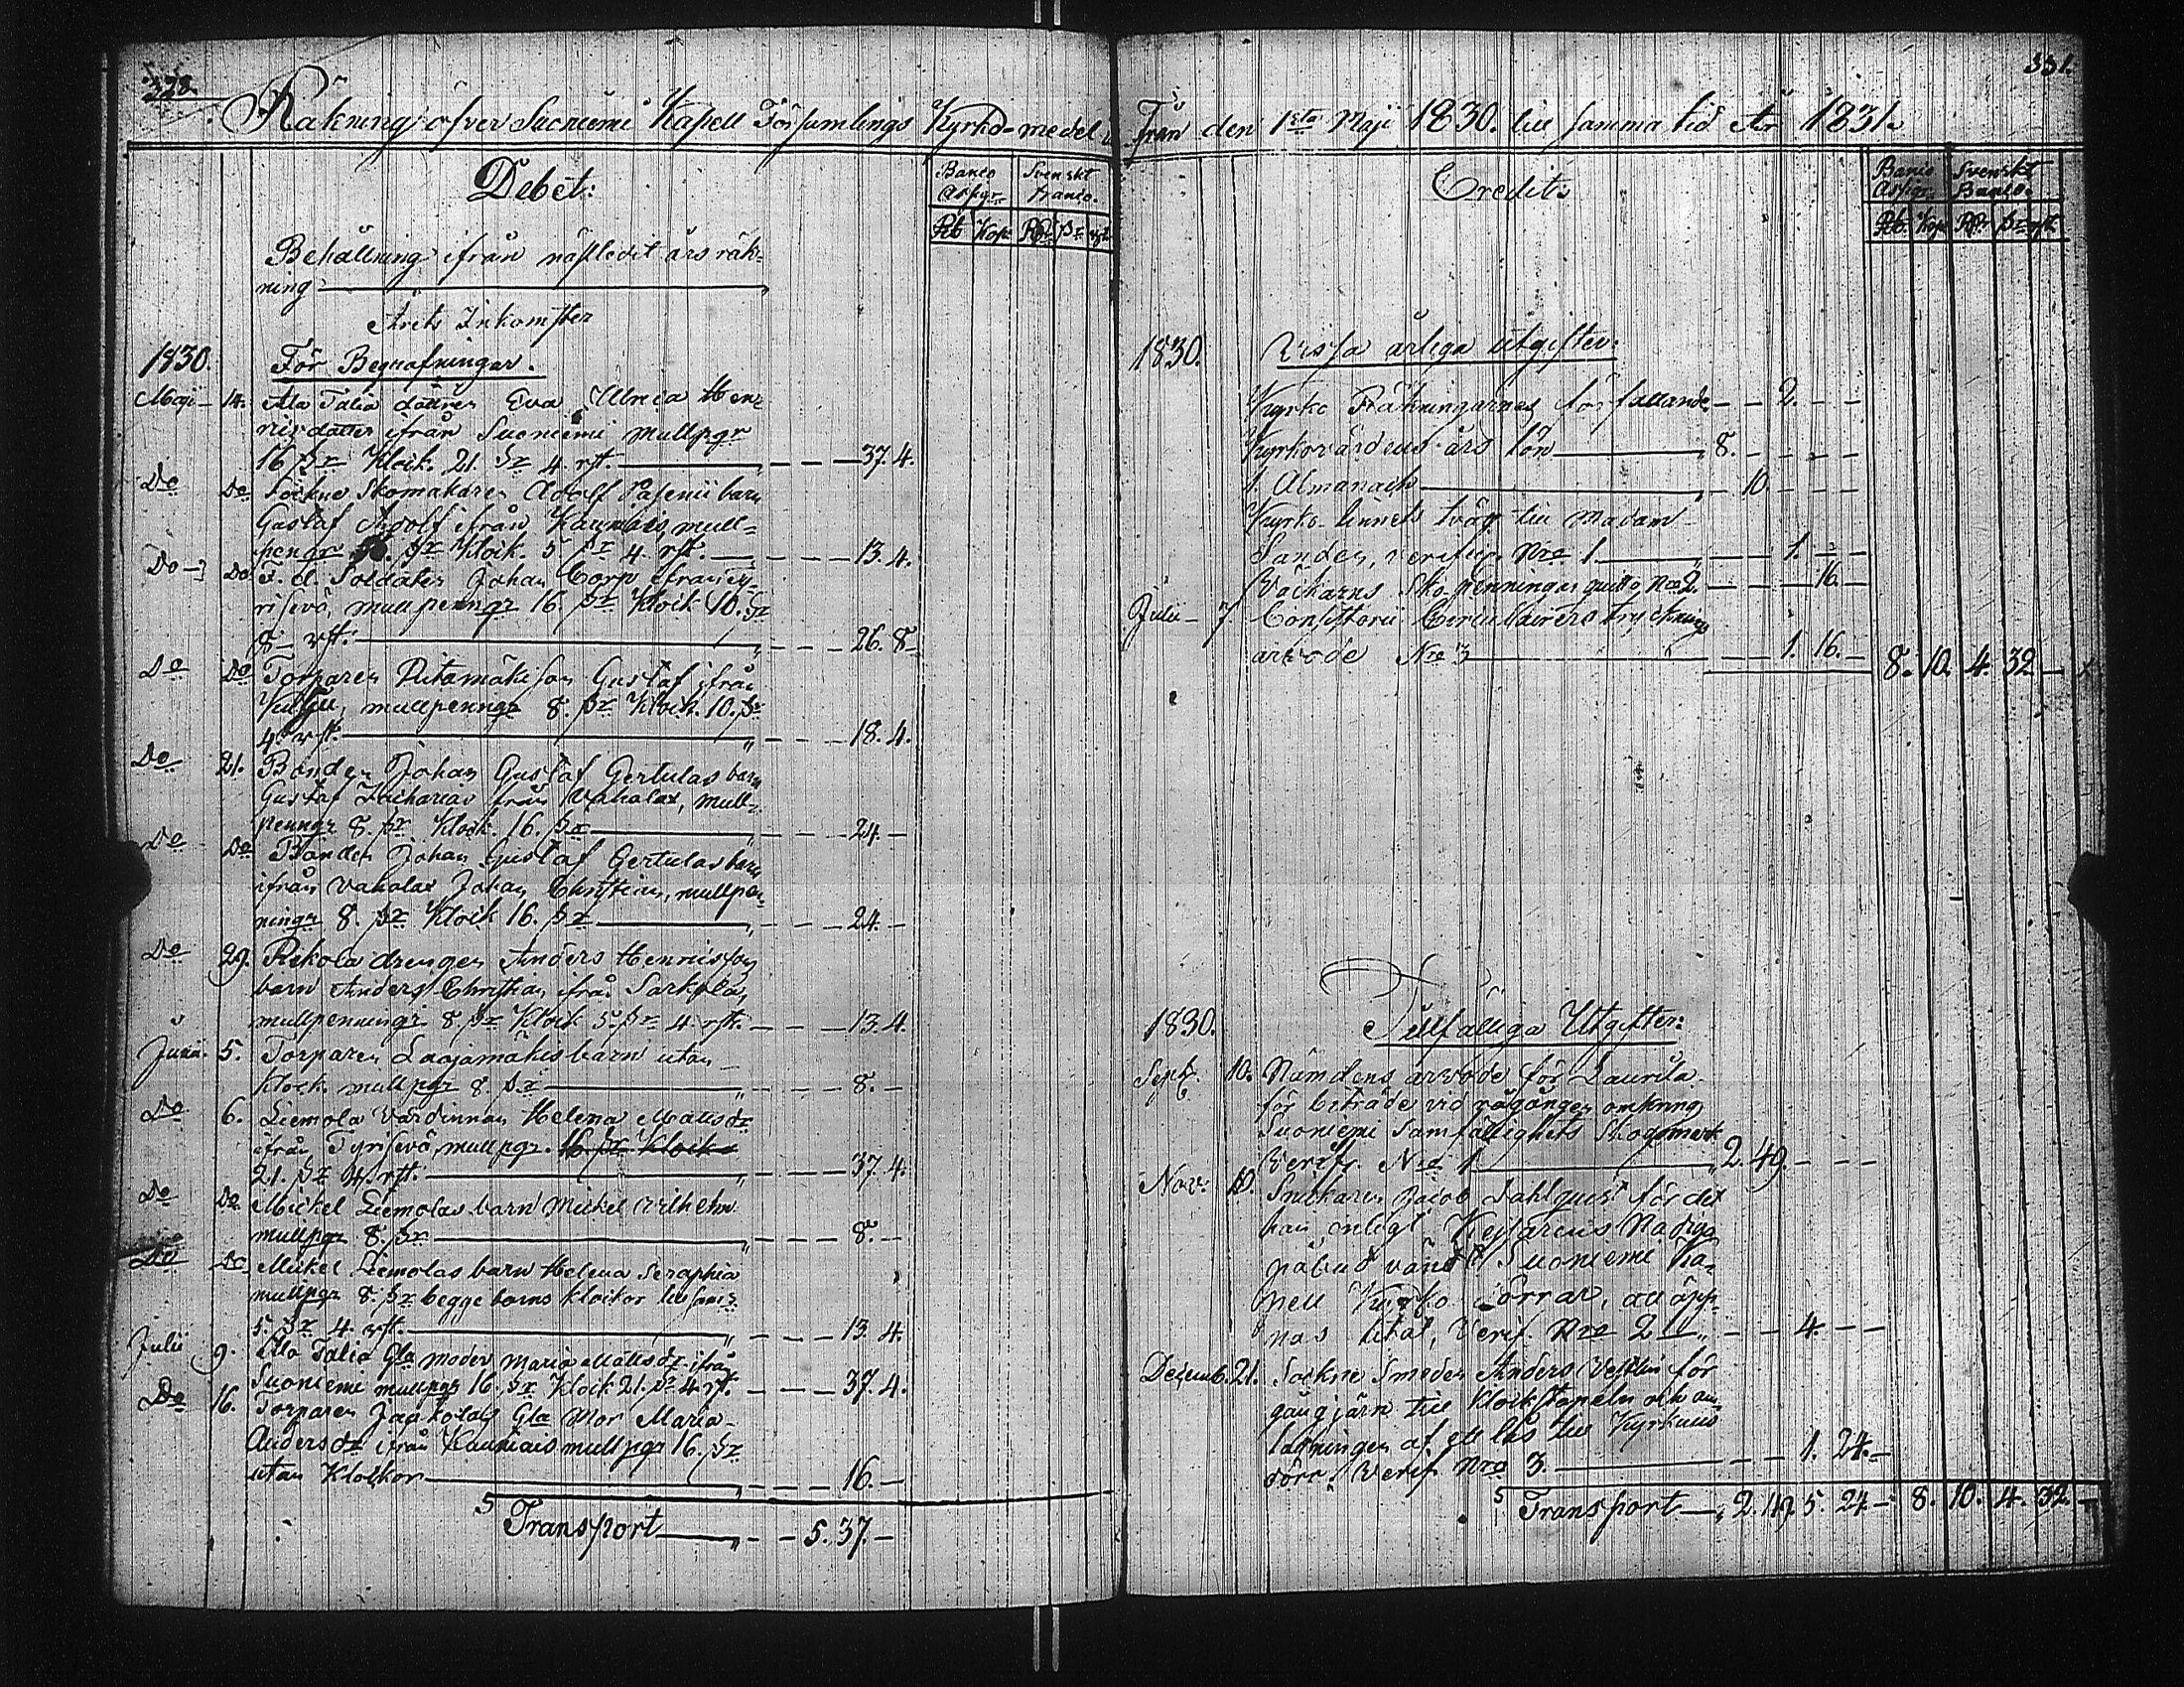 328.
Räkning öfver Suoniemi Kapell Församlings Kyrko-medel
Debet:
Banco Assgr. Svenskt Banco.
Rb Kop: Rdr sz rst
Behållning ifrån näflidit års räk-
ning
Årets Inkomster
1830. För Begrafningar.
Maji 14. Ala Talia dottren Eva Ulrica Hen-
ricsdotter ifrån Suoniemi mullpgr
16 sz Klock. 21. sz 4. rst. 37. 4.
Do Do Sockne Skomakaren Adolf barn
Gustaf Adolf ifrån Kauniais, mull-
pengr sz Klock. 5 sz 4 rst. 13. 4.
Do Do F. d. Soldaten Johan Corp ifrån Ty-
risevä, mullpenngr 16. sz Klock 10. sz
8 rst. 26. 8
Do Do Torparen son Gustaf ifrån
Kulju, mullpenngr 8. sz Klock. 10. sz
4. rst. 18. 4.
Do 21. Bonden Johan Gustaf Gertulas barn
Gustaf Zacharias från Vahalax, mull-
penngr 8. sz Klock. 16. sz 24.
Do Do Bonden Johan Gustaf Gertulas barn
ifrån Vahalax Johan Christian, mullpen-
ningr 8. sz Klock 16. sz 24.
Do 29. Rekola drengen Anders Henricsson
barn Anders Christian ifrån Sarkola,
mullpenningr 8. sz Klock 5. sz 4. rst. 13. 4.
Junii 5. Torparen Laajamäkis barn utan
Klock. mullpgr 8. sz 8.
Do 6. Liemola Värdinnan Helena Mattsdr
ifrån Tyrisevä, mullpgr. 16 sz Klock
21. sz 4. rst. 37. 4.
Do Do Mickel Liemolas barn Mickel Vilhelm
mullpgr 8. sz 8.
Do Do Mickel Liemolas barn Helena Seraphia
mullpgr 8. sz begge barns klockor
5. sz 4. rst. 13. 4.
Julii 9. Ala Talia Gla moder Maria Mattsdr ifrån
Suoniemi mullpgr 16. sz Klock 21. sz 4 rst. 37. 4.
Do 16. Torparen Gla Mor Maria
Andersdr ifrån Kauniais mullpgr 16. sz
utan Klockor 16.
Transport 5. 37.
331.
Från den 1sta Maji 1830. till samma tid År 1831.
Credit
Banco Assgr. Svenskt Banco.
Rb. Kop Rdr sz rst
1830. Vissa årliga utgifter:
Kyrko Räkningarnes författande 2.
Kyrkovärdens års lön 8.
1. Almanach 10.
Kyrko linnets tvätt till Madam
Sanden, verific. Nro 1. 1.
Väckarns Sko-penningar quitto Nro 2. 16.
Julii 7. Consistorii Circulairers trycknings
arvode Nro 3 1. 16. 8. 10. 4. 32
1830. Tillfälliga Utgifter:
Sept. 10. Nämdens arvode för Laurila
för biträde vid rågången omkring
Suoniemi Samfällighets Skogsmark
Verif. Nro 1 2. 49.
Nov. 10. Snickaren Jacob Dahlquist för det
han enligt Kejsarens Nådiga
påbud vändt Suoniemi Ka-
pell Kyrko dörrar, att öpp-
nas utåt, Verif. Nro 2 4.
Decemb. 21. Sockne Smeden Anders Vestlin för
gångjärn till Klockstapeln och an-
lagningen af ett lås till Kyrkans
dörr, Verif. Nro 3. 1. 24.
Transport 2. 49. 5. 24 8. 10. 4. 32.